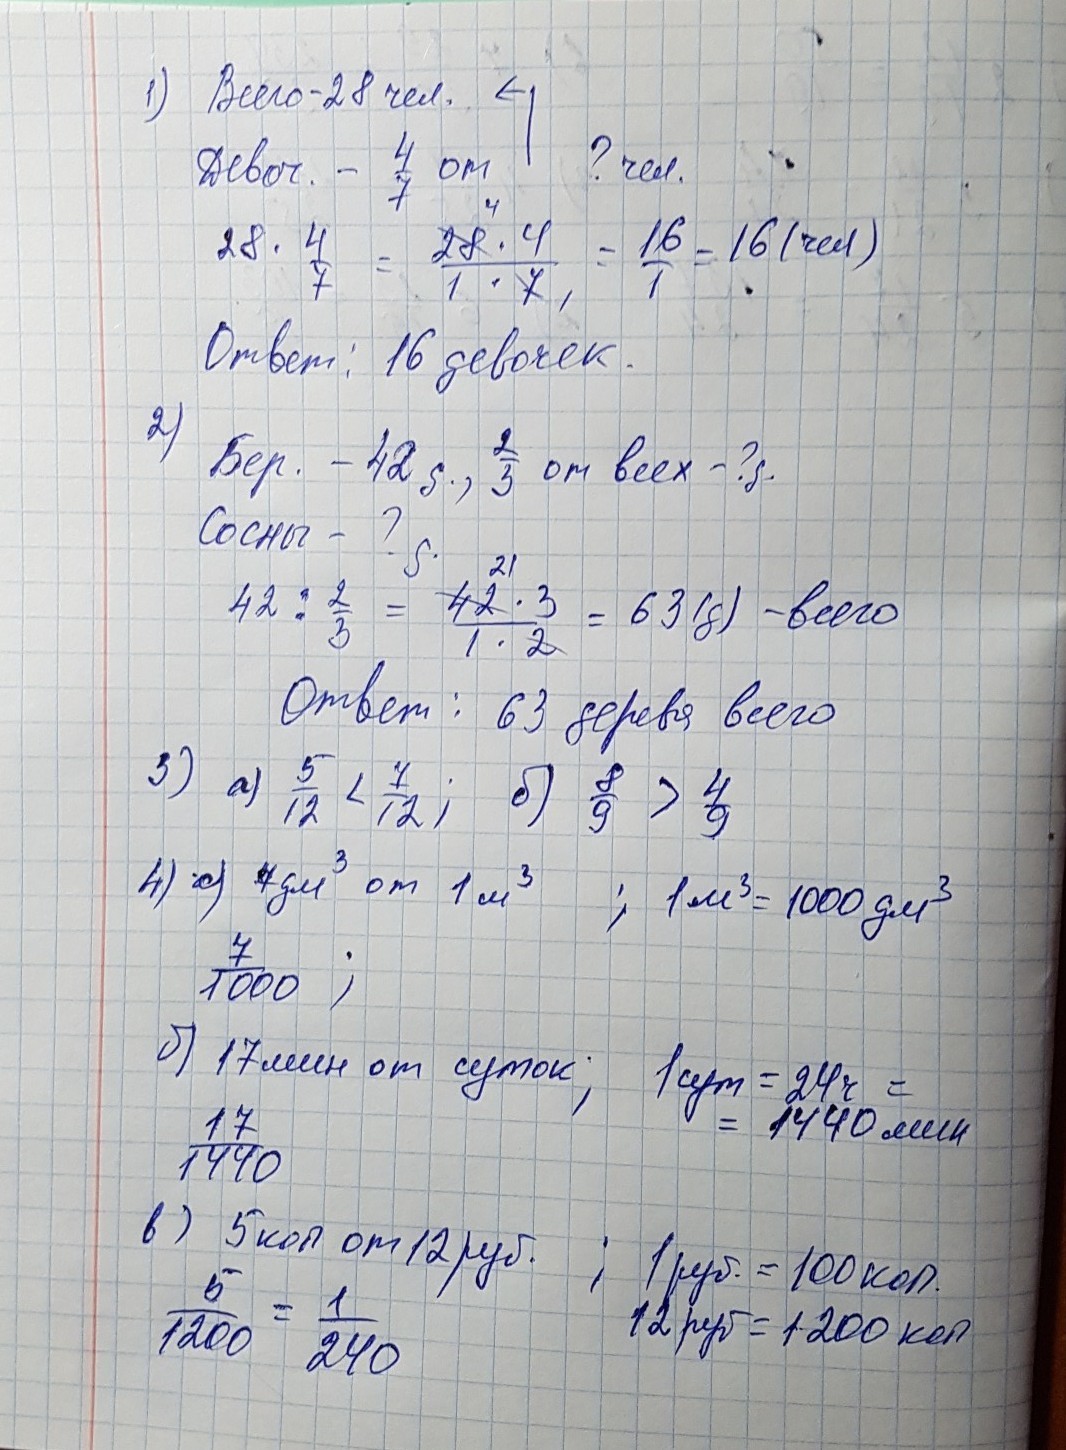 1) Всего - 28 чел. ←
Девоч. - 4/7 от ? чел.
28 · 4/7 = 28⁴ · 4 / 1 · 7, = 16/1 = 16 (чел)
Ответ: 16 девочек.
2)
Бер. - 42 д., 2/3 от всех - ? д.
Сосны - ? д.
42 : 2/3 = 42²¹ · 3 / 1 · 2 = 63 (д) - всего
Ответ: 63 дерева всего
3) а) 5/12 < 7/12; б) 8/9 > 4/9
4) а) 7 дм³ от 1 м³ ; 1 м³ = 1000 дм³
7/1000 ;
б) 17 мин от суток; 1 сут = 24 ч =
= 1440 мин
17/1440
в) 5 коп от 12 руб. ; 1 руб. = 100 коп.
5/1200 = 1/240 12 руб = 1200 коп